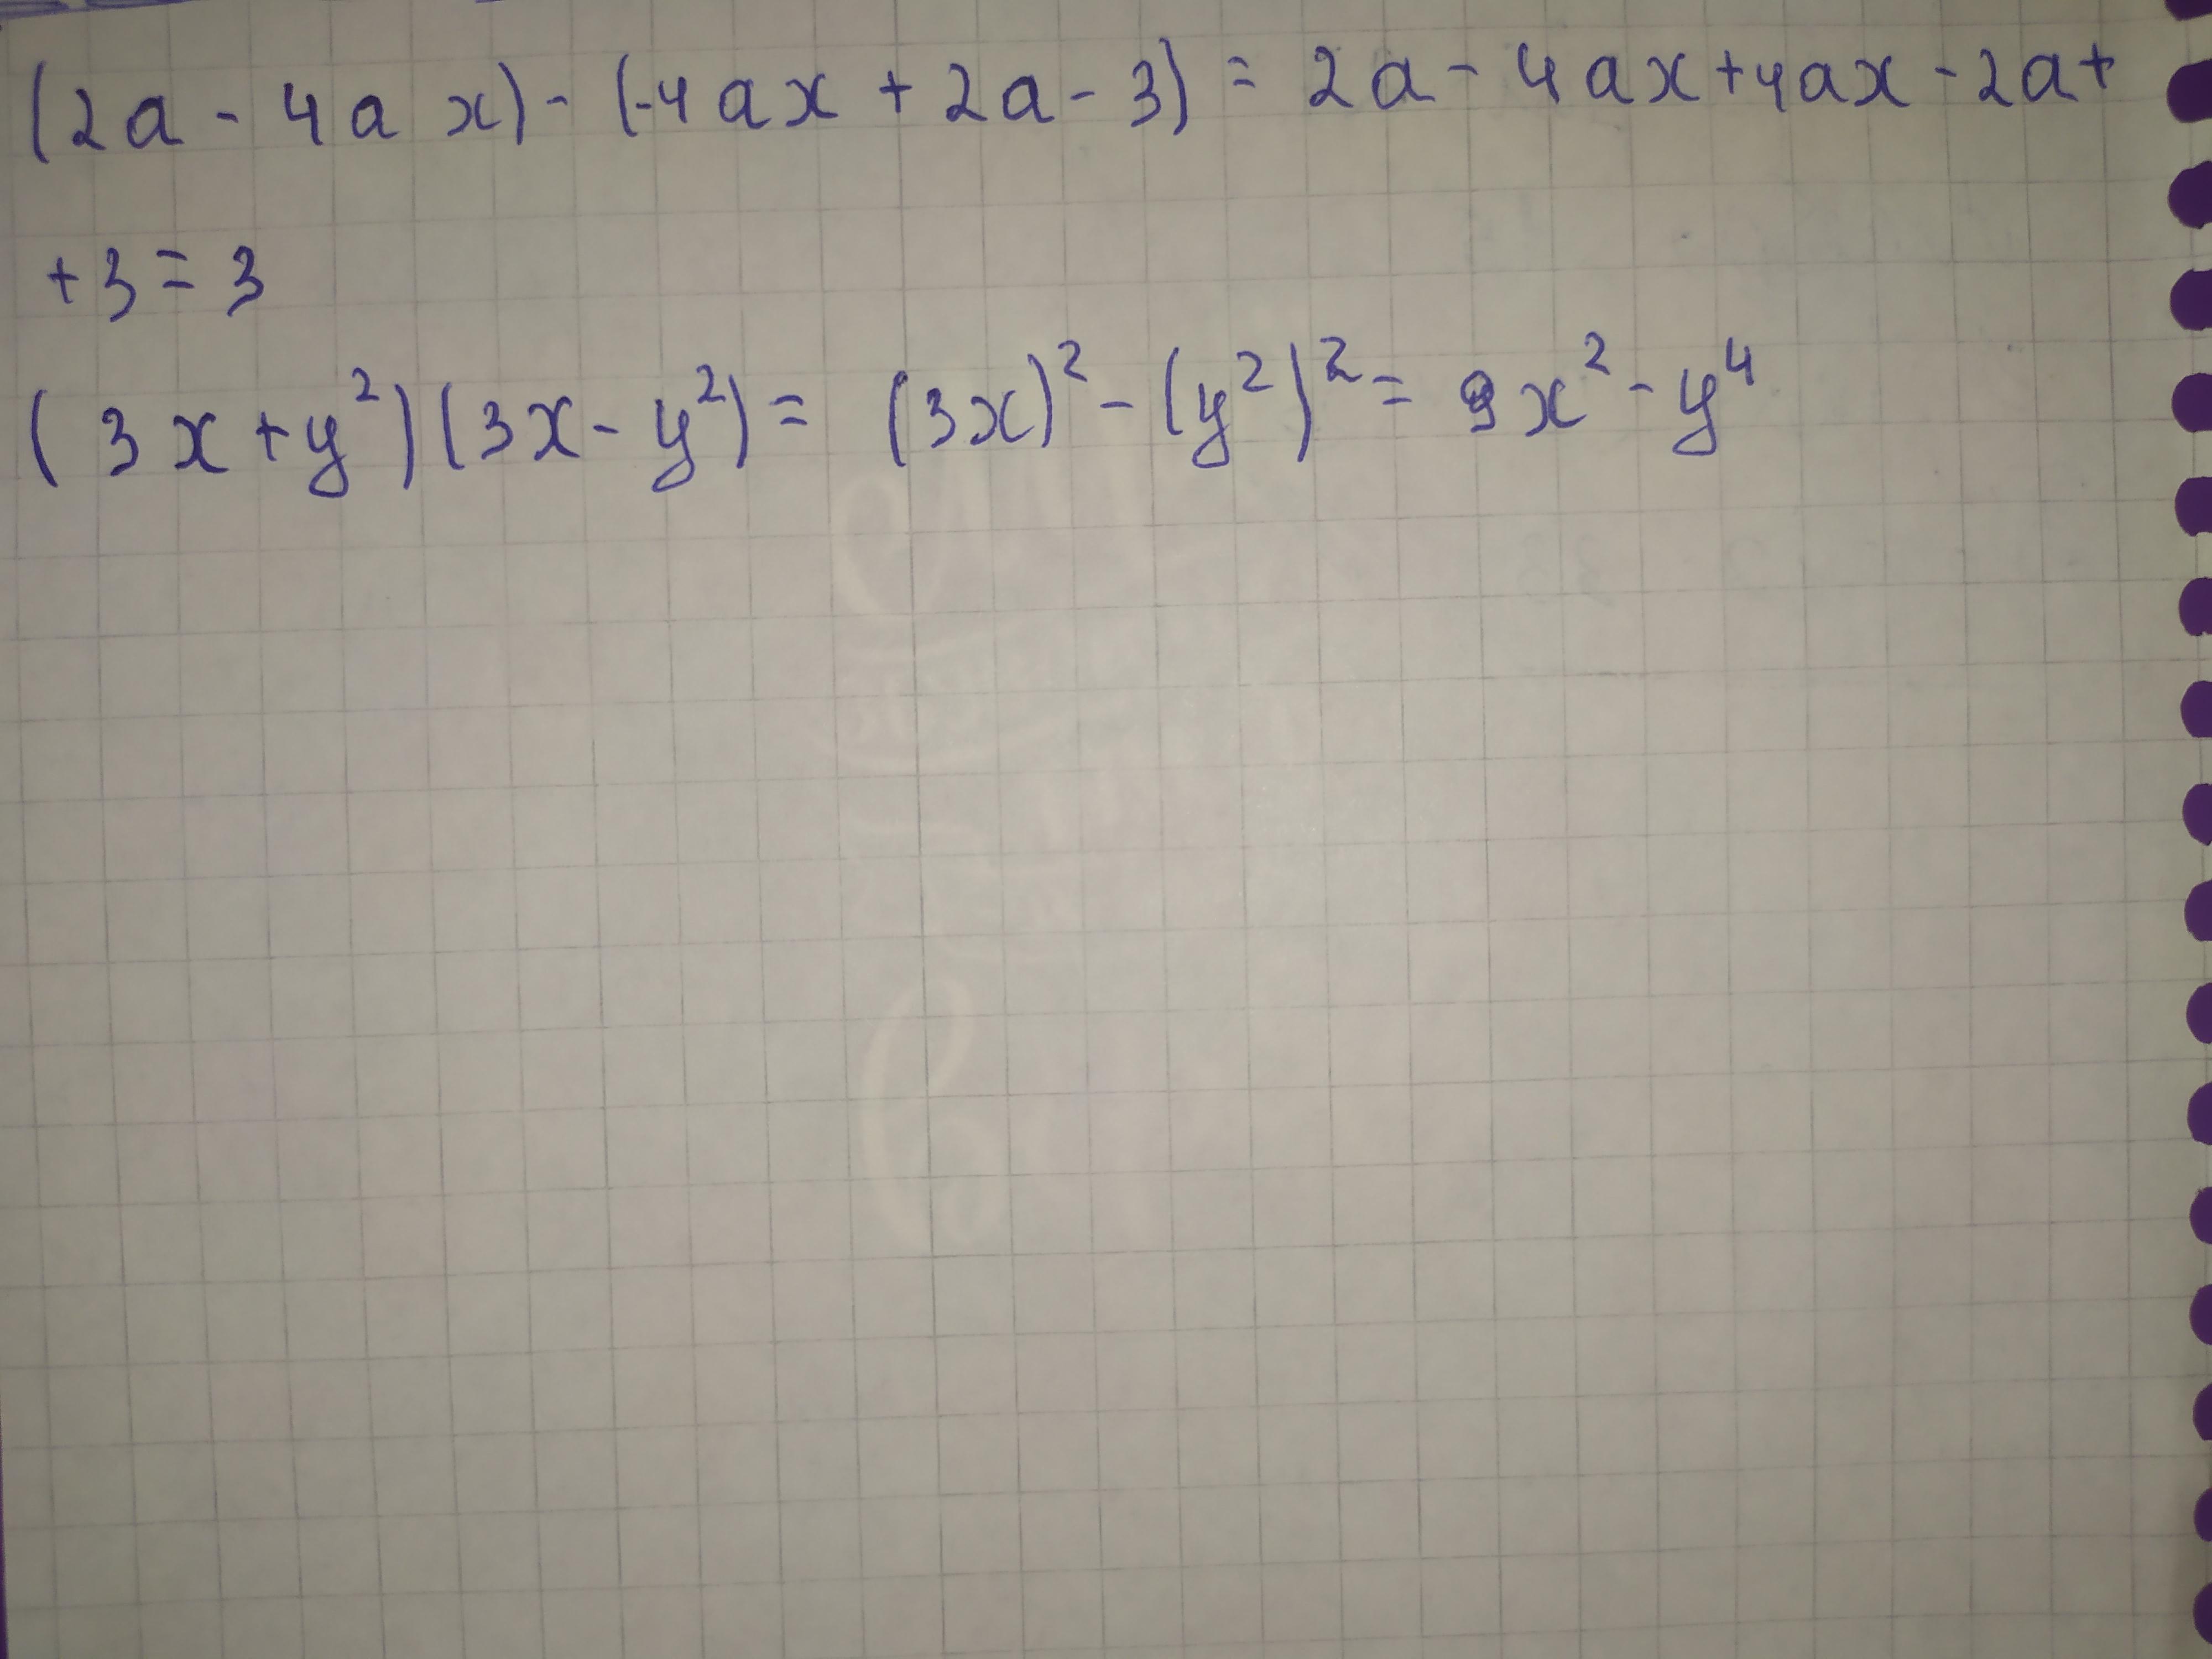 (2a - 4a x) - (-4ax + 2a - 3) = 2a - 4ax + 4ax - 2a +
+ 3 = 3
(3x + y²)(3x - y²) = (3x)² - (y²)² = 9x² - y⁴